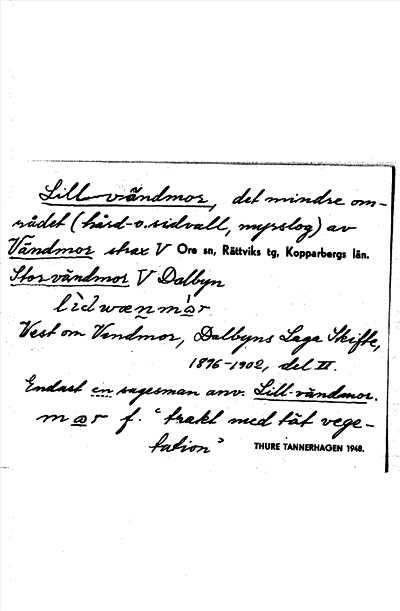 Lill-vändmor, det mindre om-
rådet (hård- o. sidvall, myrslog) av
Vändmor strax V Ore sn, Rättviks tg, Kopparbergs län.
Stor-vändmor V Dalbyn
lìdwænmàr
Väst om Vendmor, Dalbyns Laga Skifte,
1896-1902, del II.
Endast en sagesman anv. Lill-vändmor.
mar f. "trakt med tät vege-
tation"
THURE TANNERHAGEN 1948.